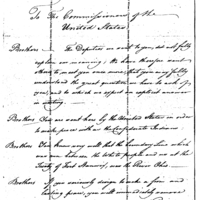 To The Commissioners of the
United States
Brothers The Deputies we sent to you, did not fully
explain our meaning; We have therefore sent
them to you once more, that you may fully
understand the great question we have to ask of
you, and to which we expect an explicit answer
in writing.
Brothers You are sent here by the United States in order
to make peace with us the Confederate Indians
Brothers You know very well that the boundary line which
was run between the white people and us at the
Treaty of Fort Stanwix, was the River Ohio.
Brothers If you seriously design to make a firm and
lasting peace, you will immediately remove